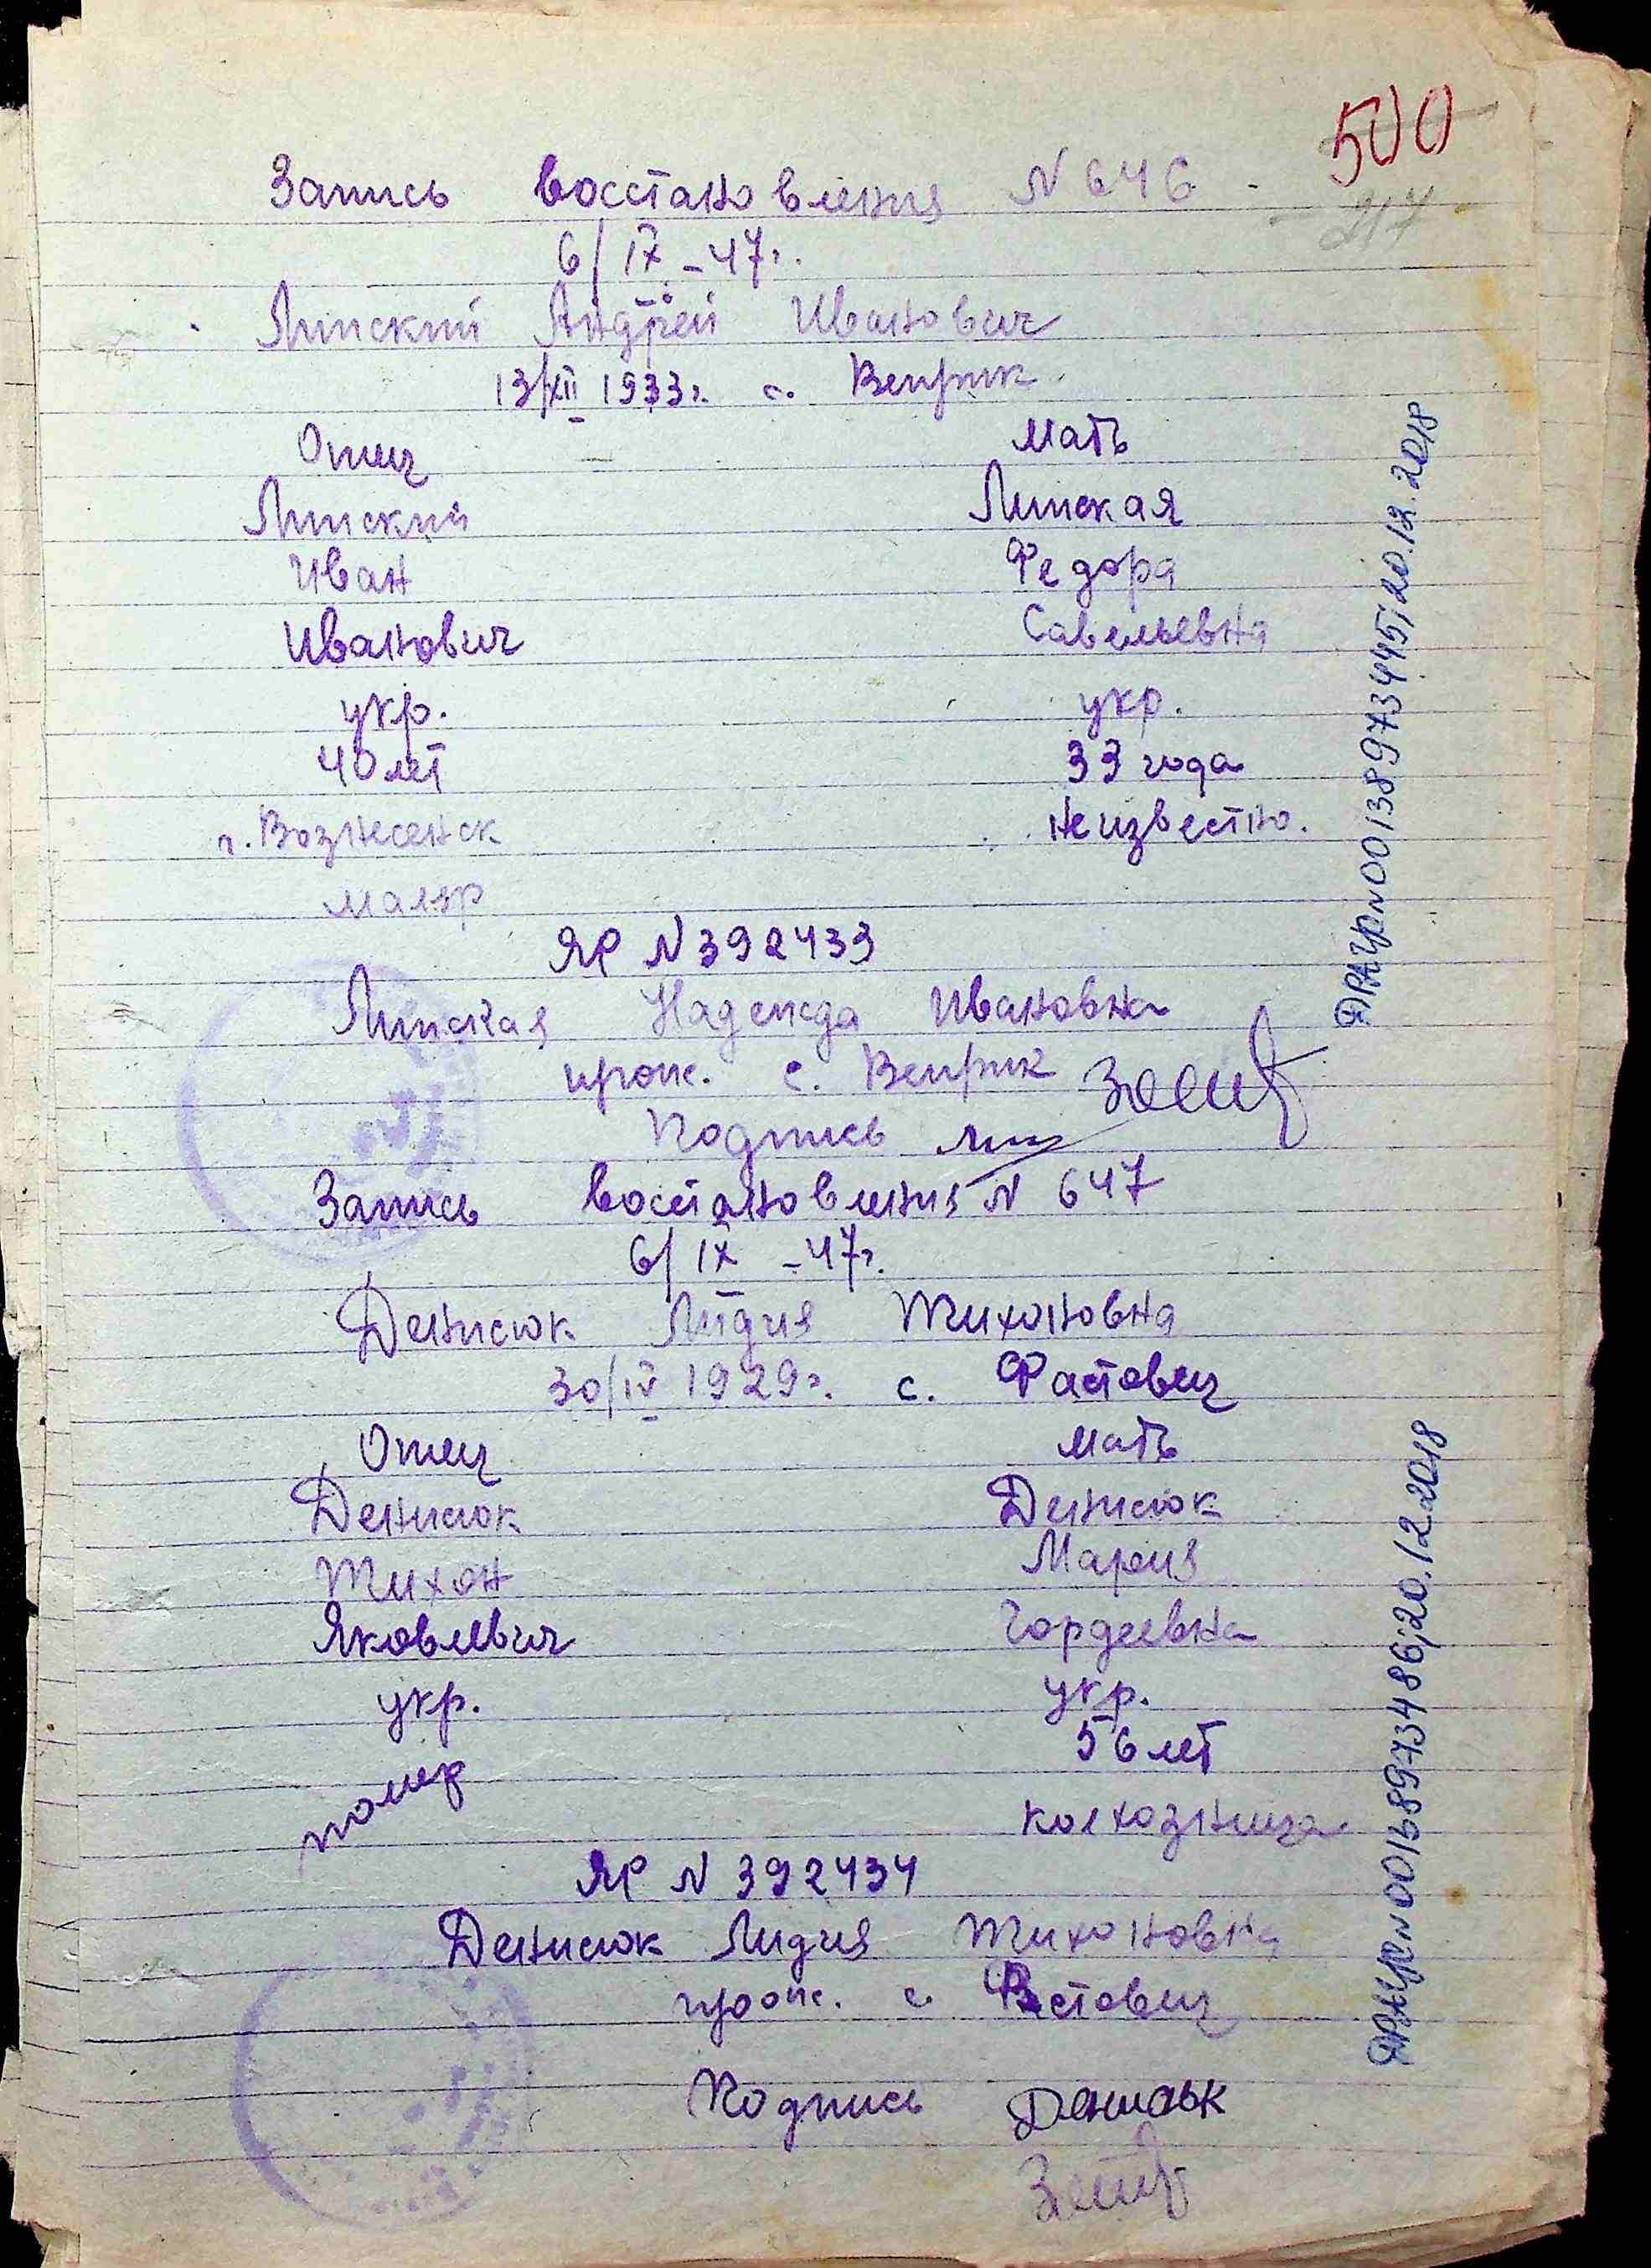 500
217
Запись восстановления N 646
6/IX-47г.
Липский Андрей Иванович
13/XII 1933г. с. Веприк
Отец Мать
Липский Липская
Иван Федора
Иванович Савельевна
укр. укр.
40 лет 33 года
г. Вознесенск неизвестно.
маляр
ЯР N 392433
Липская Надежда Ивановна
прож. с. Веприк
Подпись Лип
Запись восстановления N 647
6/IX-47г.
Денисюк Лидия Тихоновна
30/IV 1929г. с. Фастовец
Отец Мать
Денисюк Денисюк
Тихон Мария
Яковлевич Гордеевна
укр. укр.
помер 56 лет
колхозница
ЯР N 392434
Денисюк Лидия Тихоновна
прож. с. Фастовец
Подпись Денисюк
ДРАЦС N 00138973445; 20.12.2018
ДРАЦС N 00138973486; 20.12.2018